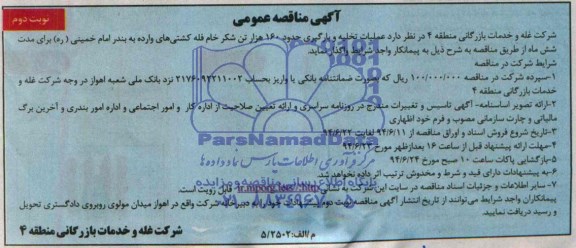 آگهی مناقصه عمومی
نوبت دوم
شرکت غله و خدمات بازرگانی منطقه ۴ در نظر دارد عملیات تخلیه و بارگیری حدود ۱۶۰ هزار تن شکر خام فله کشتی‌های وارده به بندر امام خمینی (ره) برای مدت
شش ماه از طریق مناقصه به شرح ذیل به پیمانکار واجد شرایط واگذار نماید.
شرایط شرکت در مناقصه
۱-سپرده شرکت در مناقصه ۱۰۰/۰۰۰/۰۰۰ ریال که بصورت ضمانتنامه بانکی یا واریز بحساب ۲۱۷۶۰۹۲۲۱۱۰۰۲ نزد بانک ملی شعبه اهواز در وجه شرکت غله و
خدمات بازرگانی منطقه ۴
۲-ارائه تصویر اساسنامه- آگهی تاسیس و تغییرات مندرج در روزنامه سراسری و ارائه تعیین صلاحیت از اداره کار و امور اجتماعی و اداره امور بندری و آخرین برگ
مالیاتی و چارت سازمانی مصوب و فرم خود اظهاری
۳-تاریخ شروع فروش اسناد و اوراق مناقصه از ۹۴/۶/۱۱ لغایت ۹۴/۶/۲۲
۴-مهلت ارائه پیشنهاد قبل از ساعت ۱۶ بعدازظهر مورخ ۹۴/۶/۲۳
۵-بازگشایی پاکات ساعت ۱۰ صبح مورخ ۹۴/۶/۲۴
۶-به پیشنهادات دارای قید و شرط و مخدوش ترتیب اثر داده نخواهد شد.
۷- سایر اطلاعات و جزئیات اسناد مناقصه در سایت این شرکت به نشانی قابل رویت است.
پیمانکاران واجد شرایط می توانند از تاریخ انتشار آگهی مناقصه نوبت دوم به دبیرخانه شرکت واقع در اهواز میدان مولوی روبروی دادگستری تحویل
و رسید دریافت نمایند.
م/الف:۵/۲۵۰۲
شرکت غله و خدمات بازرگانی منطقه ۴
ParsNamadData
مرکز فرآوری اطلاعات پارس نماد داده ها
پایگاه اطلاع رسانی مناقصه و مزایده
۰۲۱-۸۸۳۴۹۶۷۰-۵